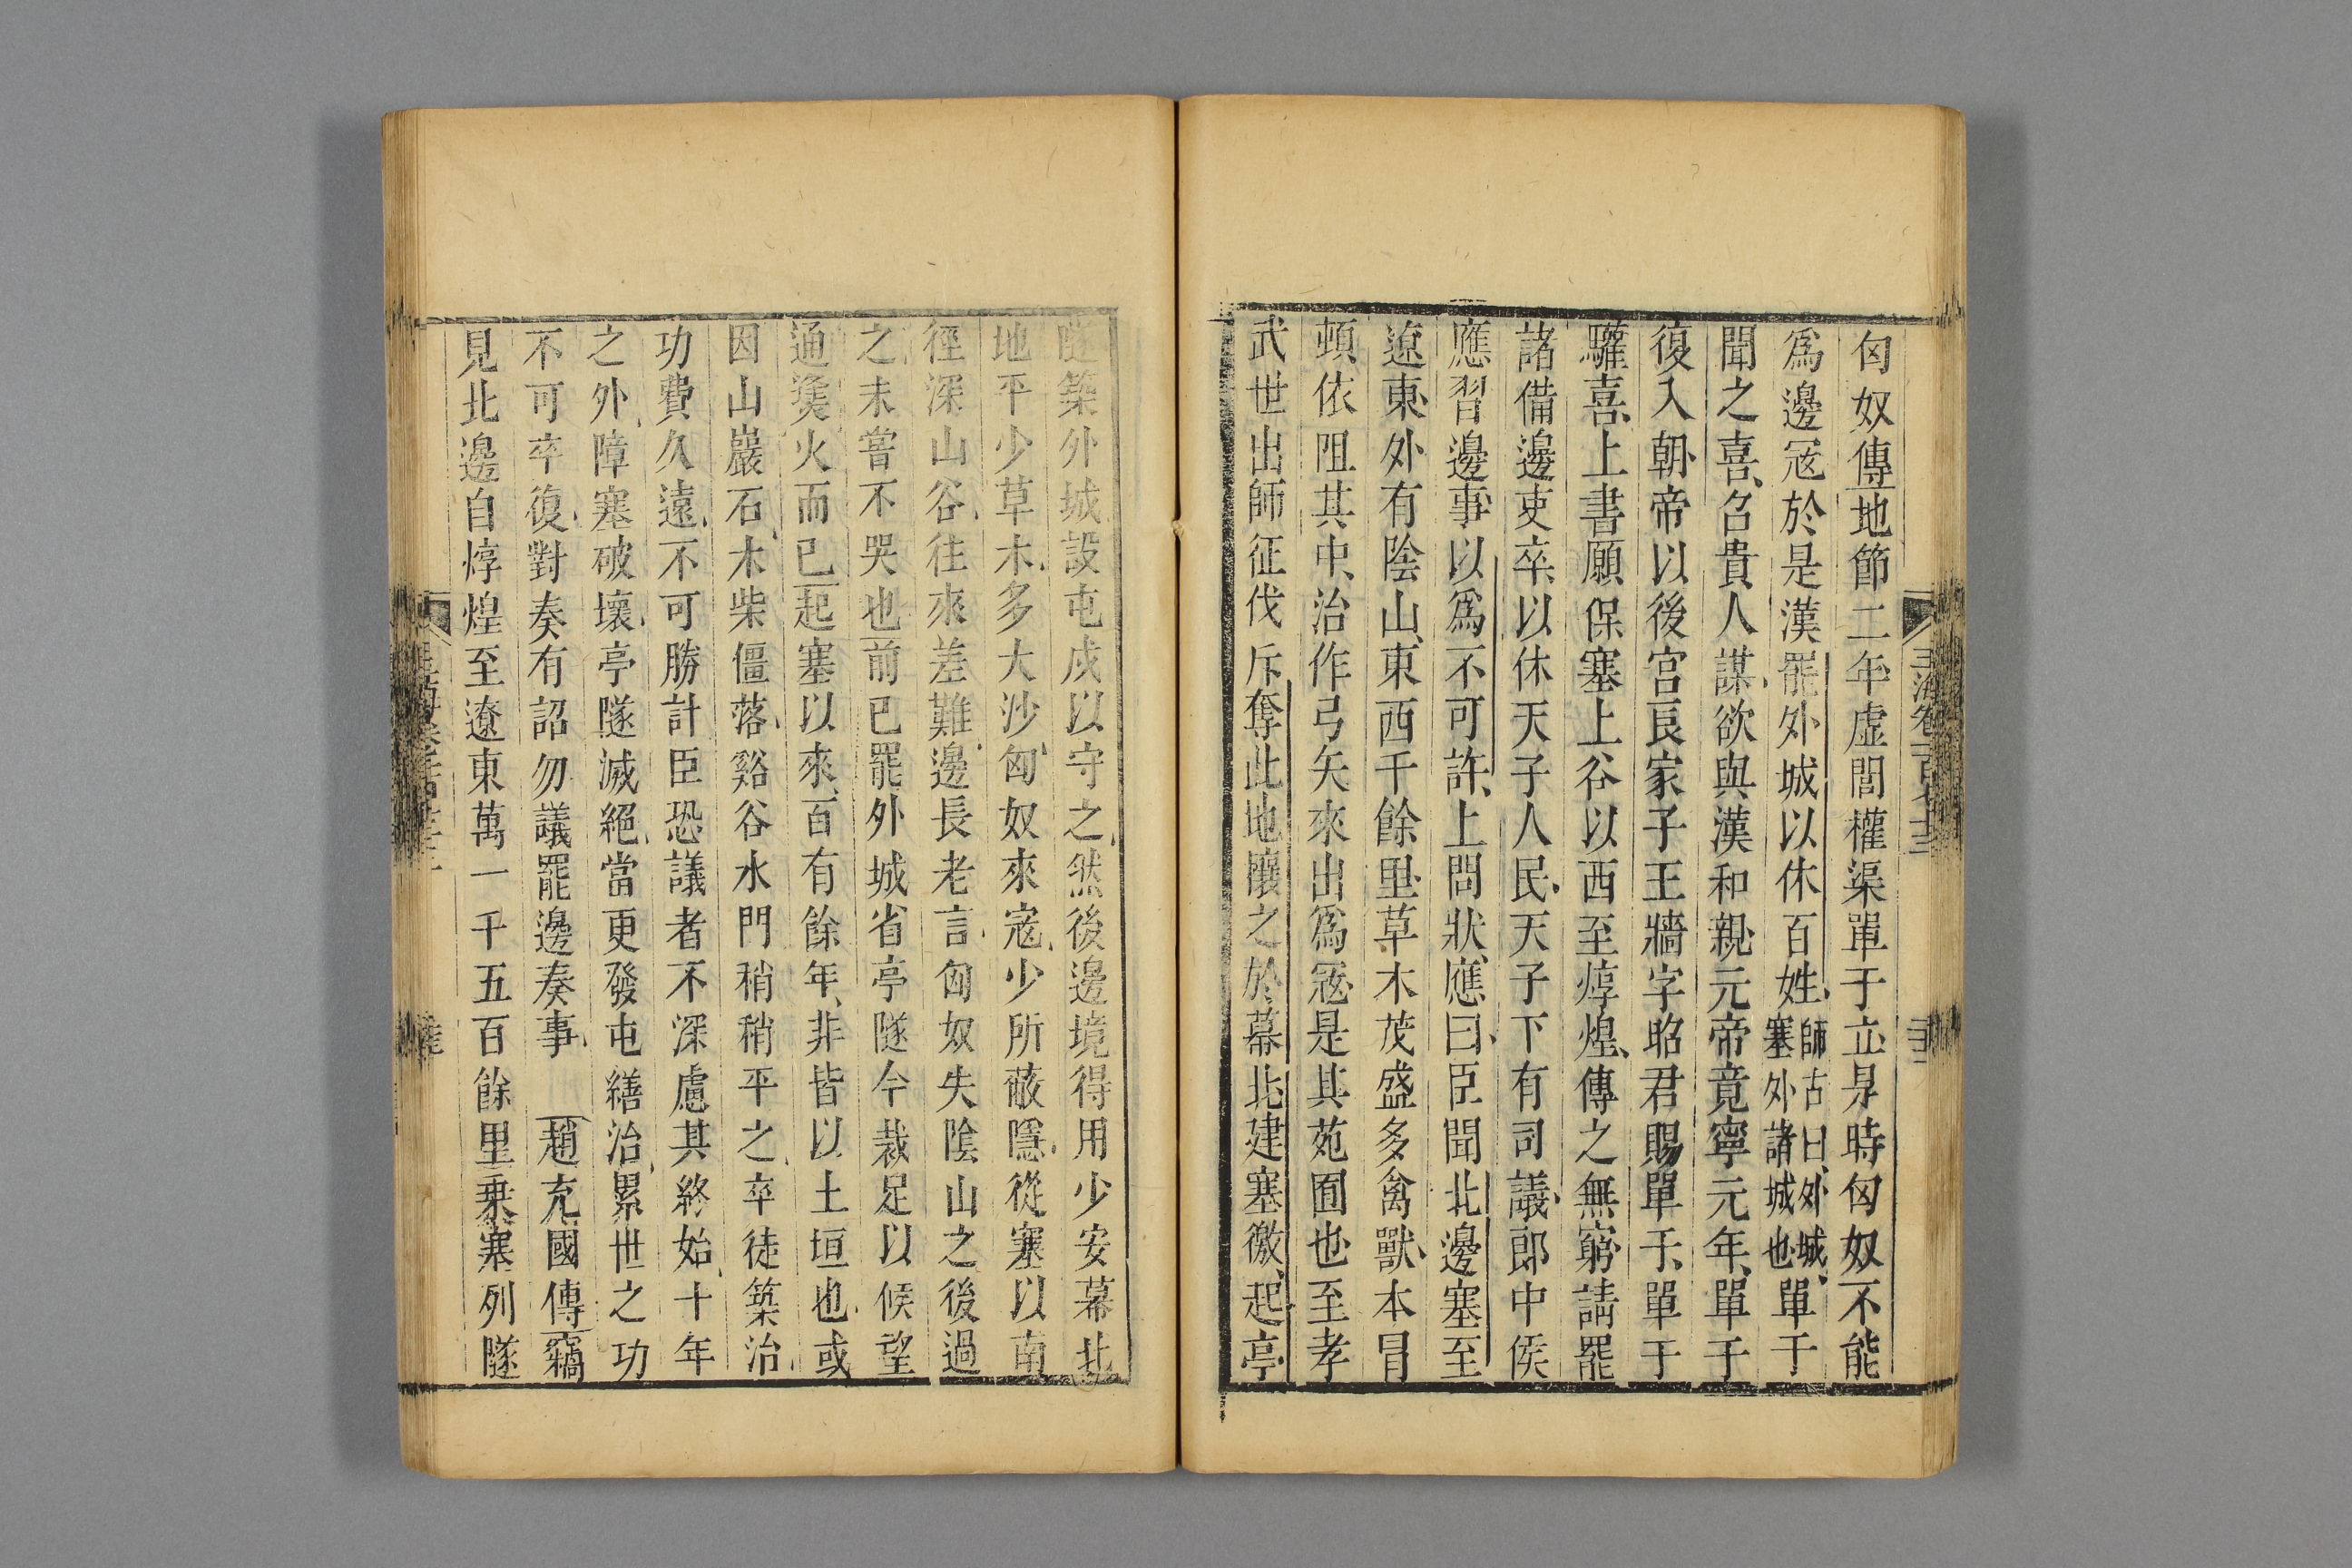 匈奴傳地節二年虛閭權渠單于立是時匈奴不能
爲邊寇於是漢罷外城以休百姓師古曰外城塞外諸城也單于
聞之喜召貴人謀欲與漢和親元帝竟寧元年單于
復入朝帝以後宮良家子王牆字昭君賜單于單于
驩喜上書願保塞上谷以西至燉煌傳之無窮請罷
諸備邊吏卒以休天子人民天子下有司議郎中侯
應習邊事以爲不可許上問狀應曰臣聞北邊塞至
遼東外有陰山東西千餘里草木茂盛多禽獸本冒
頓依阻其中治作弓矢來出爲寇是其苑囿也至孝
武世出師征伐斥奪此地攘之於幕北建塞徼起亭
隧築外城設屯戍以守之然後邊境得用少安幕北
地平少草木多大沙匈奴來寇少所蔽隱從塞以南
徑深山谷往來差難邊長老言匈奴失陰山之後過
之未嘗不哭也前已罷外城省亭隧今裁足以候望
通燧火而已起塞以來百有餘年非皆以土垣也或
因山巖石木柴僵落谿谷水門稍稍平之卒徒築治
功費久遠不可勝計臣恐議者不深慮其終始十年
之外障塞破壞亭隧滅絕當更發屯繕治累世之功
不可卒復對奏有詔勿議罷邊奏事 趙充國傳竊
見北邊自燉煌至遼東萬一千五百餘里乘塞列隧